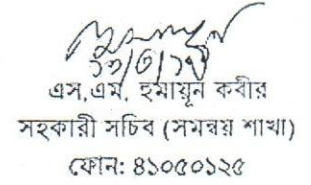 এস.এম. হুমায়ূন কবীর
সহকারী সচিব (সমন্বয় শাখা)
ফোন: ৪১০৫০১২৫